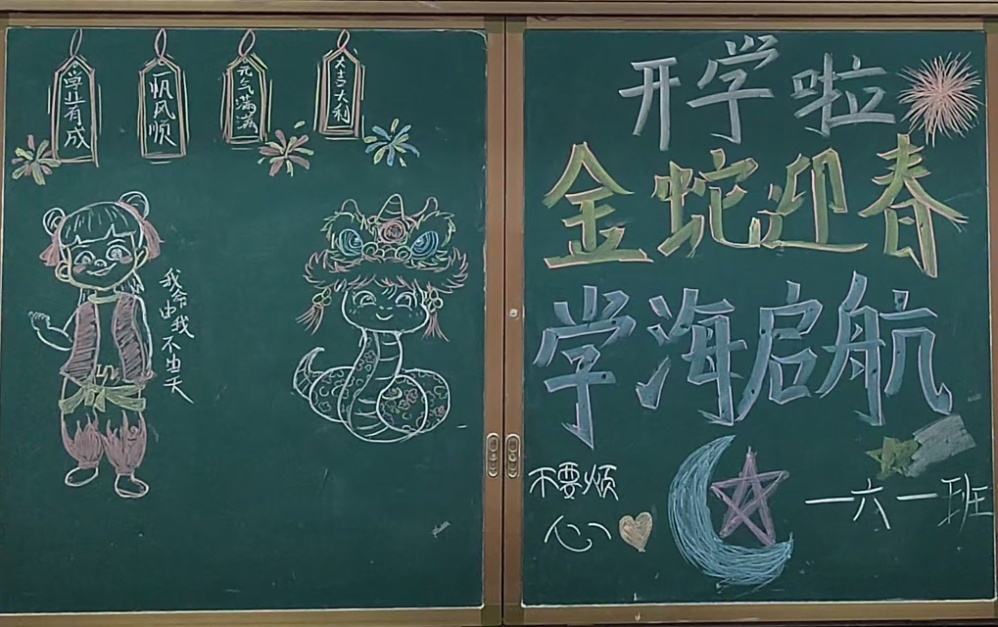 学业有成
一帆风顺
元气满满
大吉大利
我命由我不由天
开学啦
金蛇迎春
学海启航
不要烦
心
一六一班